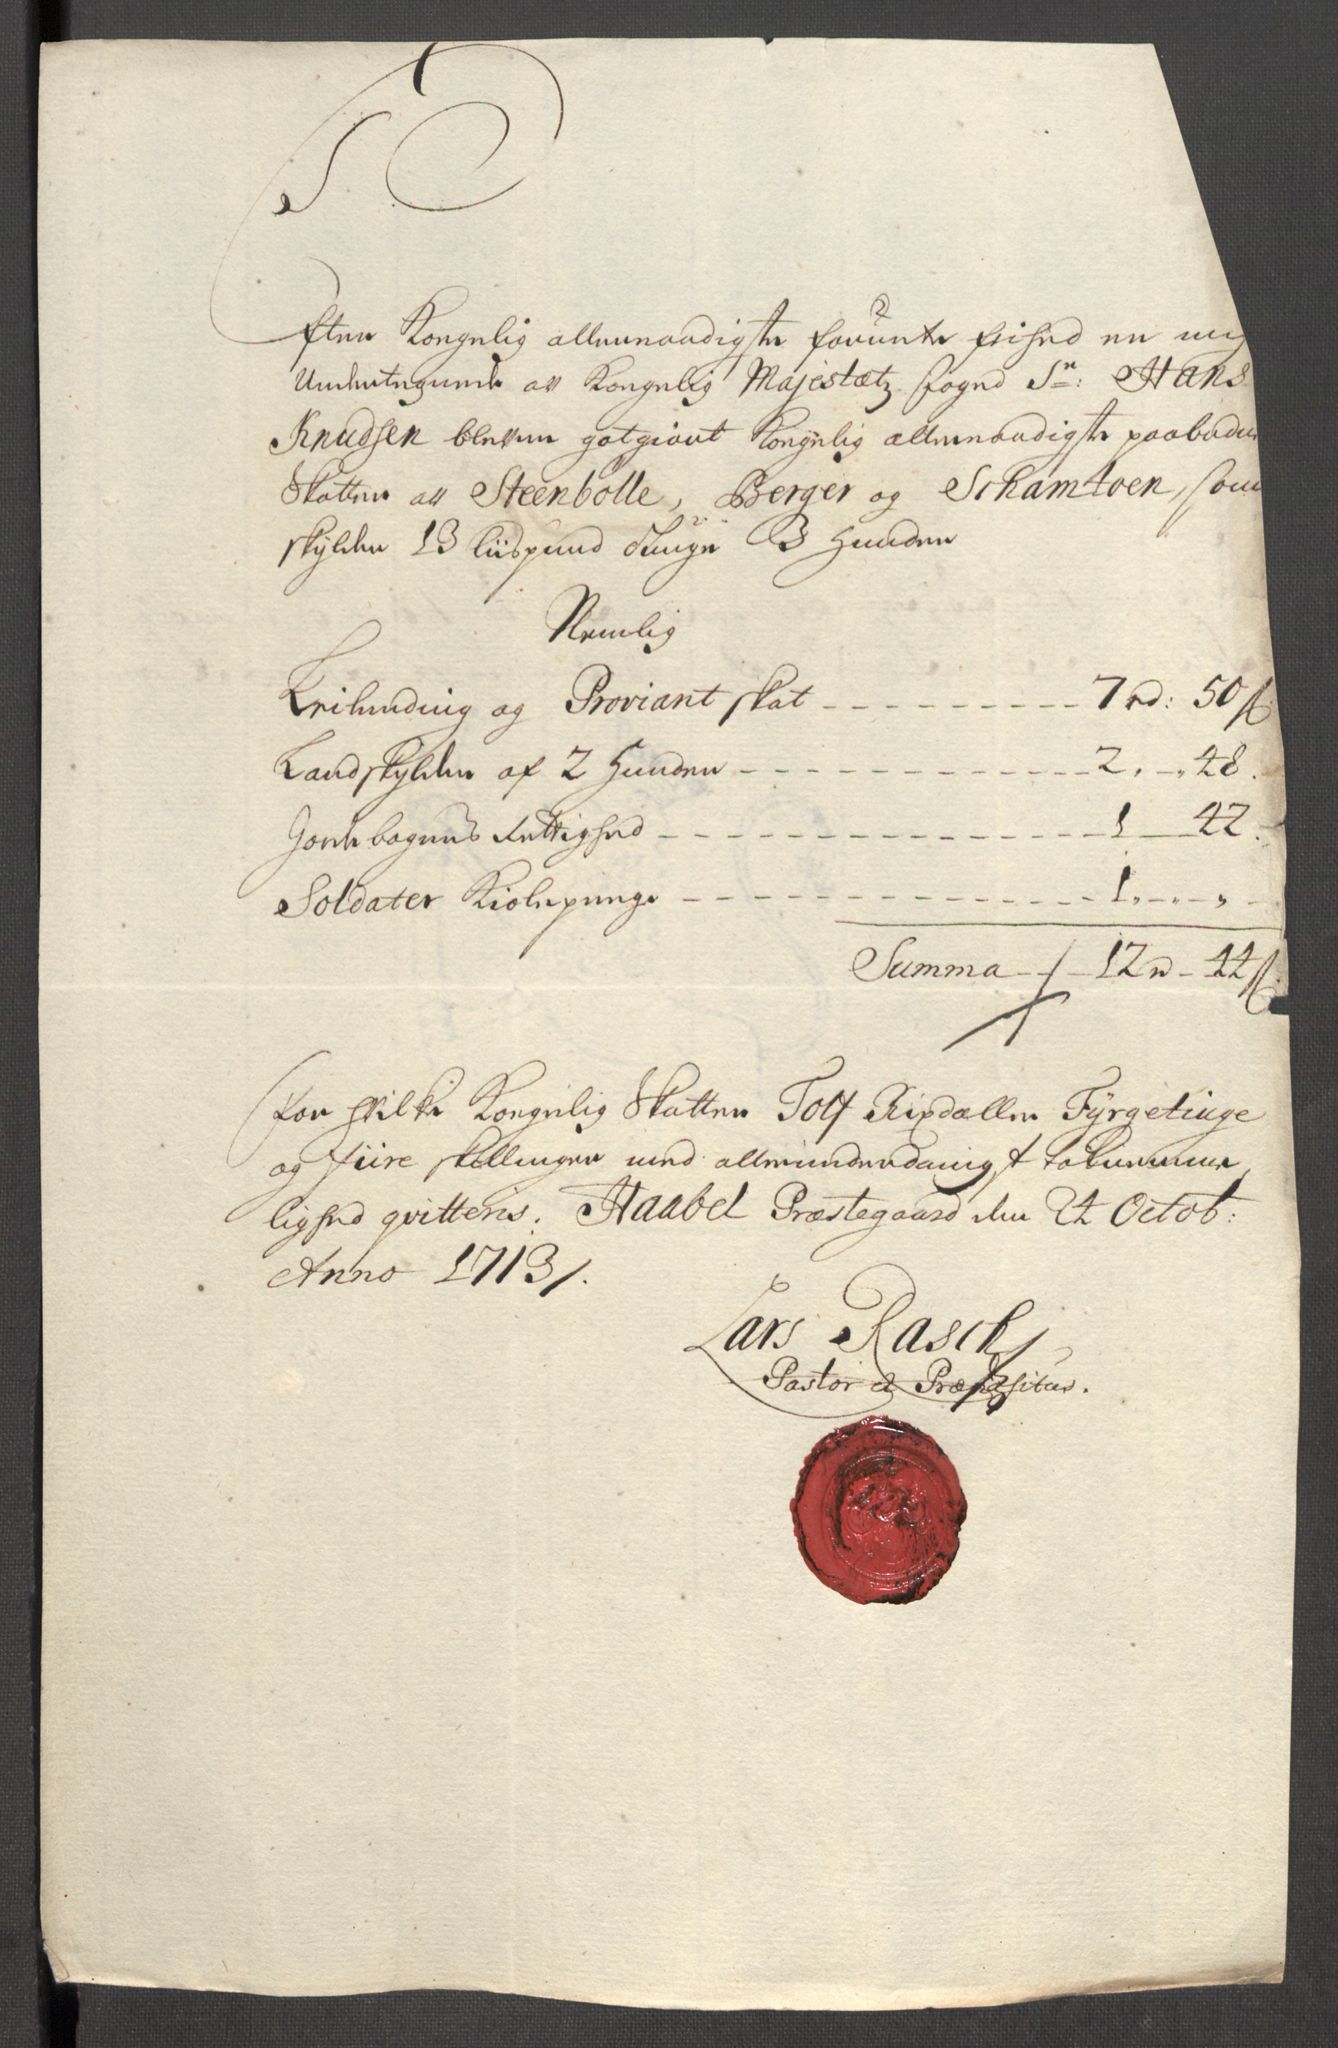 Efter Kongelig allernaadigste forunte frihed er mig
Undertegnede av Kongelig Majestætz foged Sr: Hans
Knudsen bleven gotgiort Kongelig allernaadigste paabudne
Skatter av Steenbolle, Berger og Schamtoen, som
skylder 13 liispund Tunge 3 Huuder
Nemlig
Leilending og Proviant skat 7 rd: 50 ß
Landskylden af 2 Huuder 2 48.
Jordebogens Rettighed 1 42.
Soldater Kiolepenge 1
Summa 12 rd 44 ß
for hvilke Kongelig Skatter Tolf Rixdaller Fyrgetiuge
og fiire skillinger med allerunderdanigst
lighed qvitteris. Haabel Præstegaard den 24 Octob:
Anno 1713/.
Lars Rasch
Pastor et Præpositus.